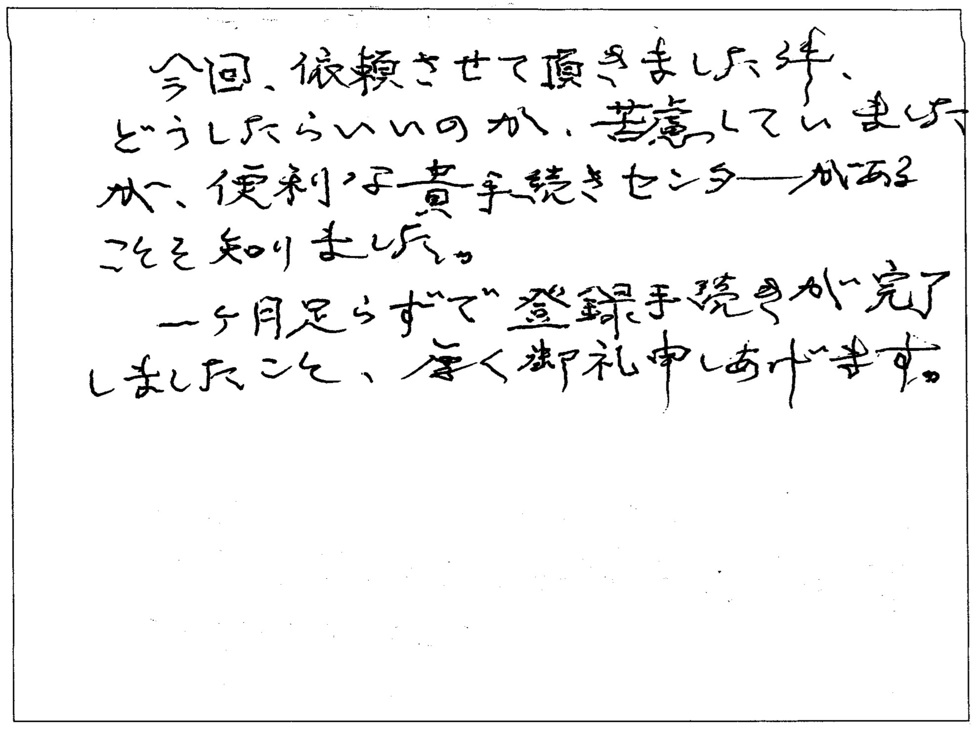 今回、依頼させて頂きました件、
どうしたらいいのか、苦慮していました
が、便利な貴手続きセンターがある
ことを知りました。
一ヶ月足らずで登録手続きが完了
しましたこと、厚く御礼申しあげます。